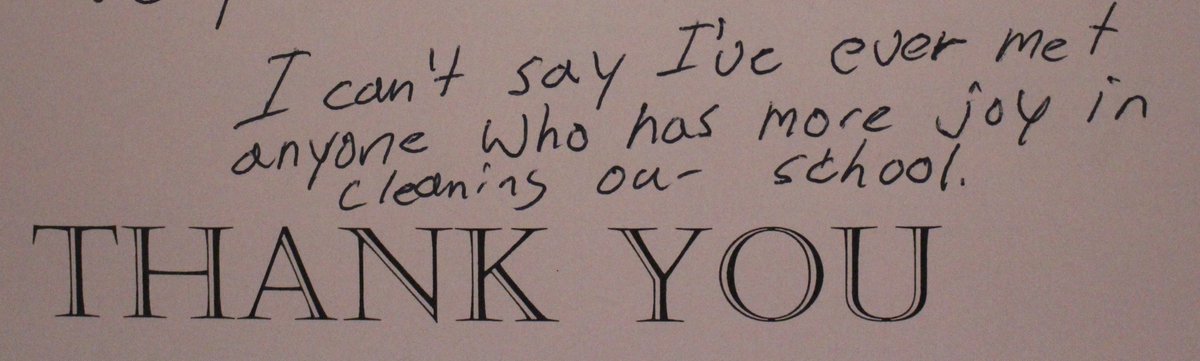 I can't say I've ever met
anyone who has more joy in
cleaning our school.
THANK YOU